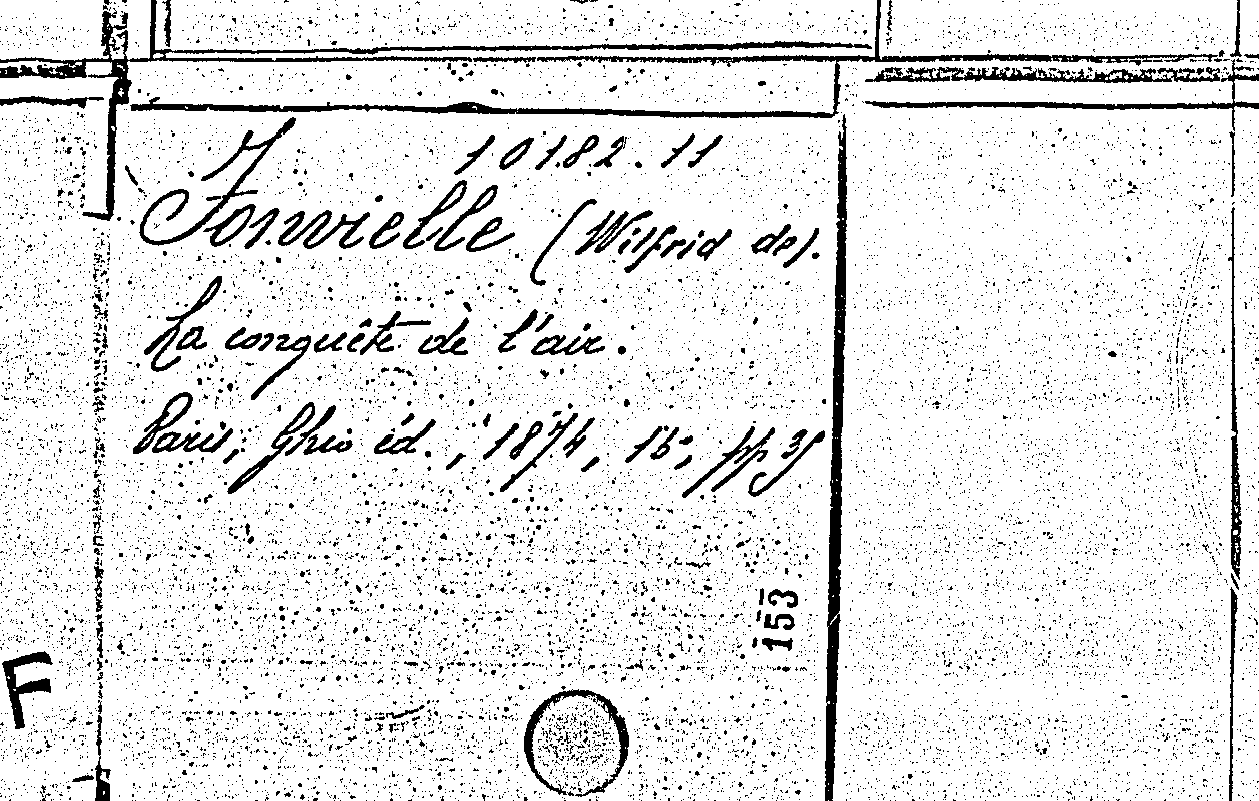 10182.11
Fonvielle (Wilfrid de).
La conquête de l'air.
Paris, Ghio éd., 1874, 16°, pp 35
153
F